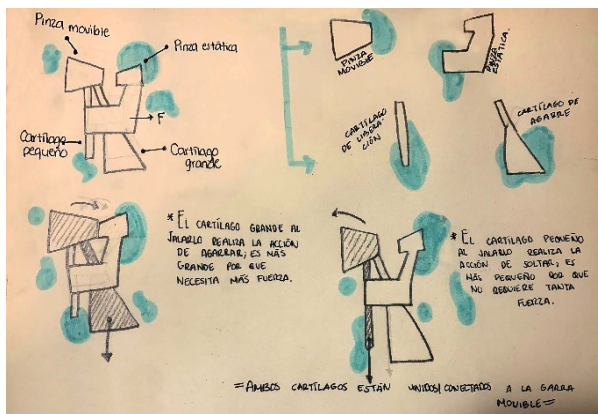 Pinza movible
Pinza estática
F
Cartílago
pequeño
Cartílago
grande
PINZA
MOVIBLE
PINZA
ESTÁTICA.
CARTÍLAGO
DE LIBERA-
CIÓN
CARTÍLAGO DE
AGARRE
* EL CARTÍLAGO GRANDE AL
JALARLO REALIZA LA ACCIÓN
DE AGARRAR; ES MÁS
GRANDE POR QUE
NECESITA MÁS FUERZA.
* EL CARTÍLAGO PEQUEÑO
AL JALARLO REALIZA LA
ACCIÓN DE SOLTAR; ES
MÁS PEQUEÑO POR QUE
NO REQUIERE TANTA
FUERZA.
=AMBOS CARTÍLAGOS ESTÁN UNIDOS/CONECTADOS A LA GARRA
MOVIBLE=